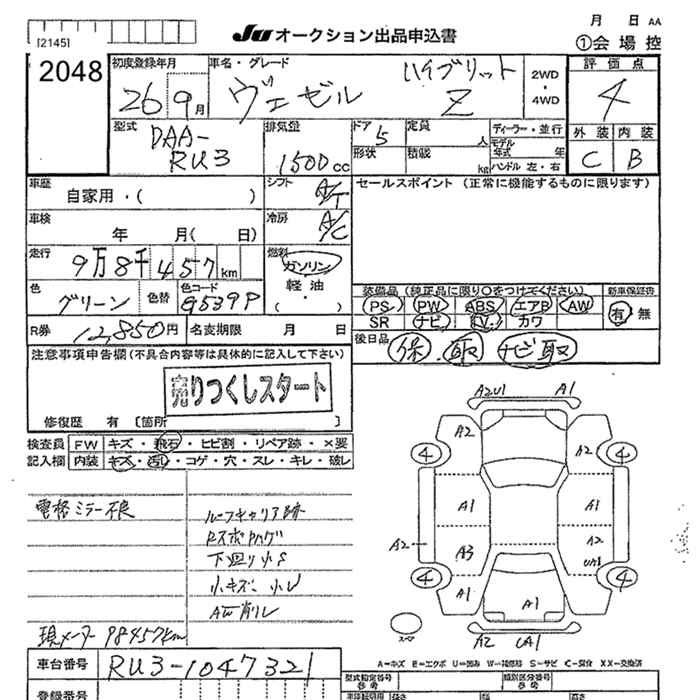 [2145]
JU オークション出品申込書
月 日 AA
①会場控
2048
初度登録年月
26 9月
車名・グレード
ヴェゼル
ハイブリット
Z
2WD
・
4WD
評価点
4
外装 内装
C B
型式
DAA-
RU3
排気量
1500cc
ドア 5
形状
定員 人
積載 kg
ディーラー・並行
モデル年式 年
ハンドル 左・右
車歴 自家用・( )
シフト A/T
セールスポイント (正常に機能するものに限ります)
車検 年 月( 日)
冷房 A/C
走行 9万8千457km
燃料
ガソリン
軽油
( ・ )
色 グリーン
色替
色コード G539P
装備品 (純正品に限り○をつけてください)
新車保証書
PS PW ABS エアB AW
有・無
SR ナビ TV カワ
R券 12,850円
名変期限 月 日
後日品 保.取 ナビ取
注意事項申告欄(不具合内容等は具体的に記入して下さい)
売りつくしスタート
修復歴 有 〔箇所 〕
検査員 FW キズ・飛石・ヒビ割・リペア跡・×要
記入欄 内装 キズ・汚レ・コゲ・穴・スレ・キレ・破レ
電格ミラー不良
ルーフキャリア跡
RスポPハゲ
下廻り小S
小キズ、小U
AW削レ
現メーター 98457km
A2U1 A1
A2 A2
4 4
A1 A1
A2 A3 A2
4 4
A1 A1 A1
スペア
A2 UA1
A=キズ E=エクボ U=凹み W=補修跡 S=サビ C=腐食 XX=交換済
車台番号 RU3-1047321
型式指定番号
類別区分番号
登録番号
長さ
高さ